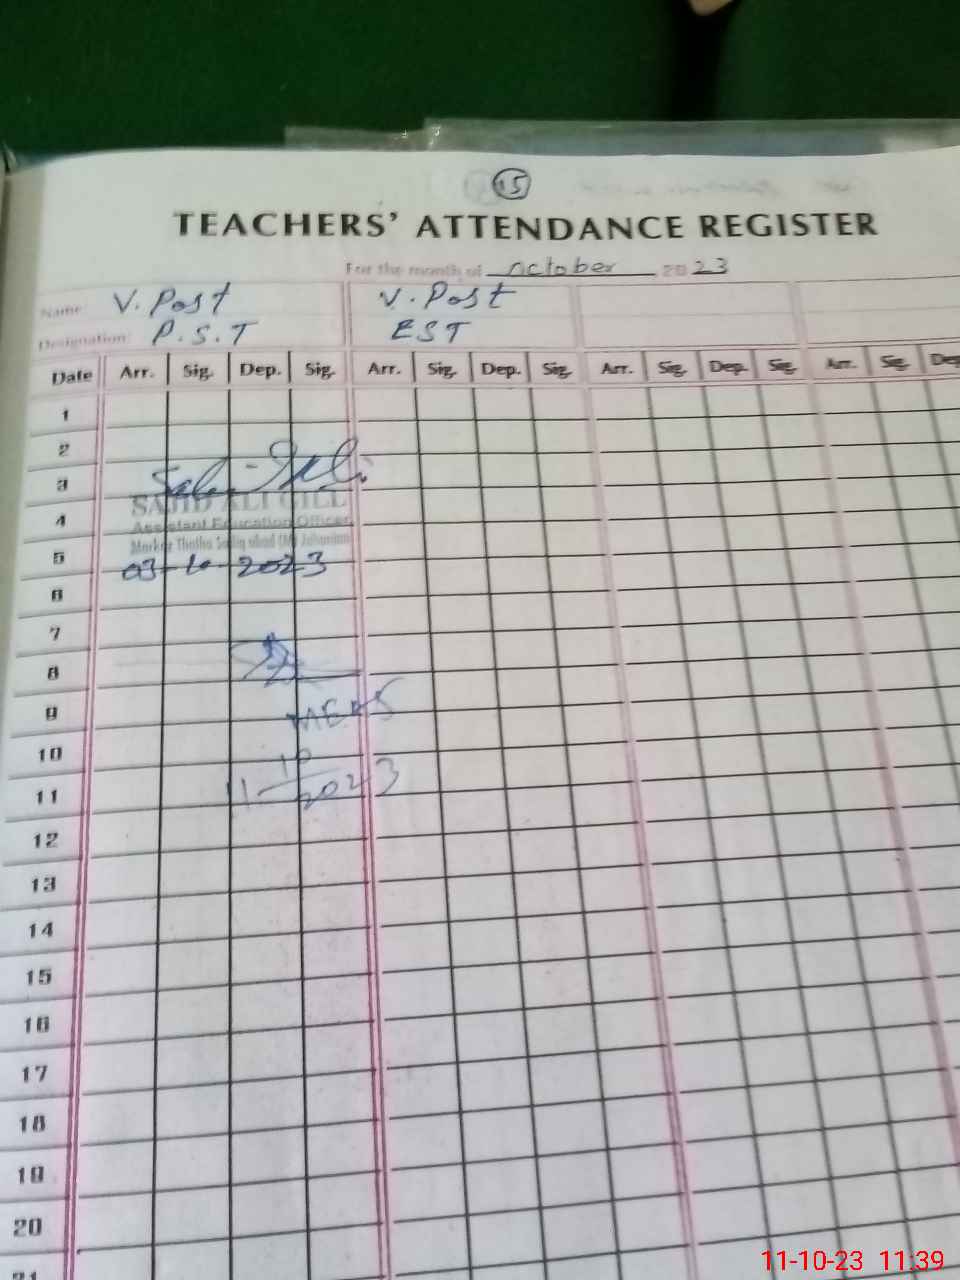 15
TEACHERS' ATTENDANCE REGISTER
For the month of October 2023
Name: V. Post V. Post
Designation: P.S.T EST
Date Arr. Sig. Dep. Sig. Arr. Sig. Dep. Sig. Arr. Sig. Dep. Sig. Arr. Sig. Dep
1
2
3
SAJID ALI GILL
4
Assistant Education Officer
Markaz Thatha Sadiq abad (M) Jahanian
5
03-10-2023
6
7
8
9
MEAS
10
11
11-10-2023
12
13
14
15
16
17
18
19
20
21
11-10-23 11:39